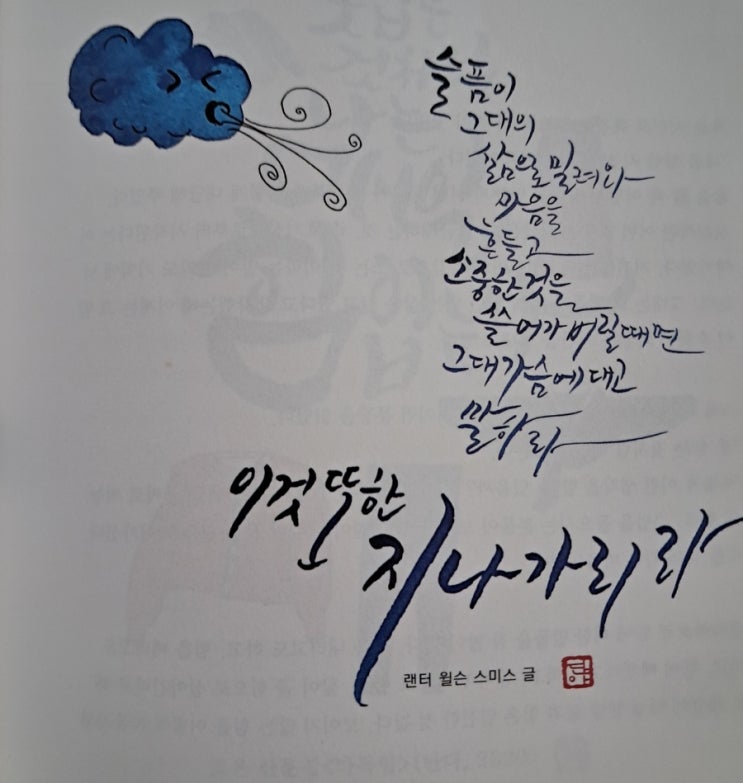 슬픔이
그대의
삶으로 밀려와
마음을
흔들고
소중한 것을
쓸어가 버릴때면
그대 가슴에 대고
말하라
이것 또한
지나가리라
랜터 윌슨 스미스 글